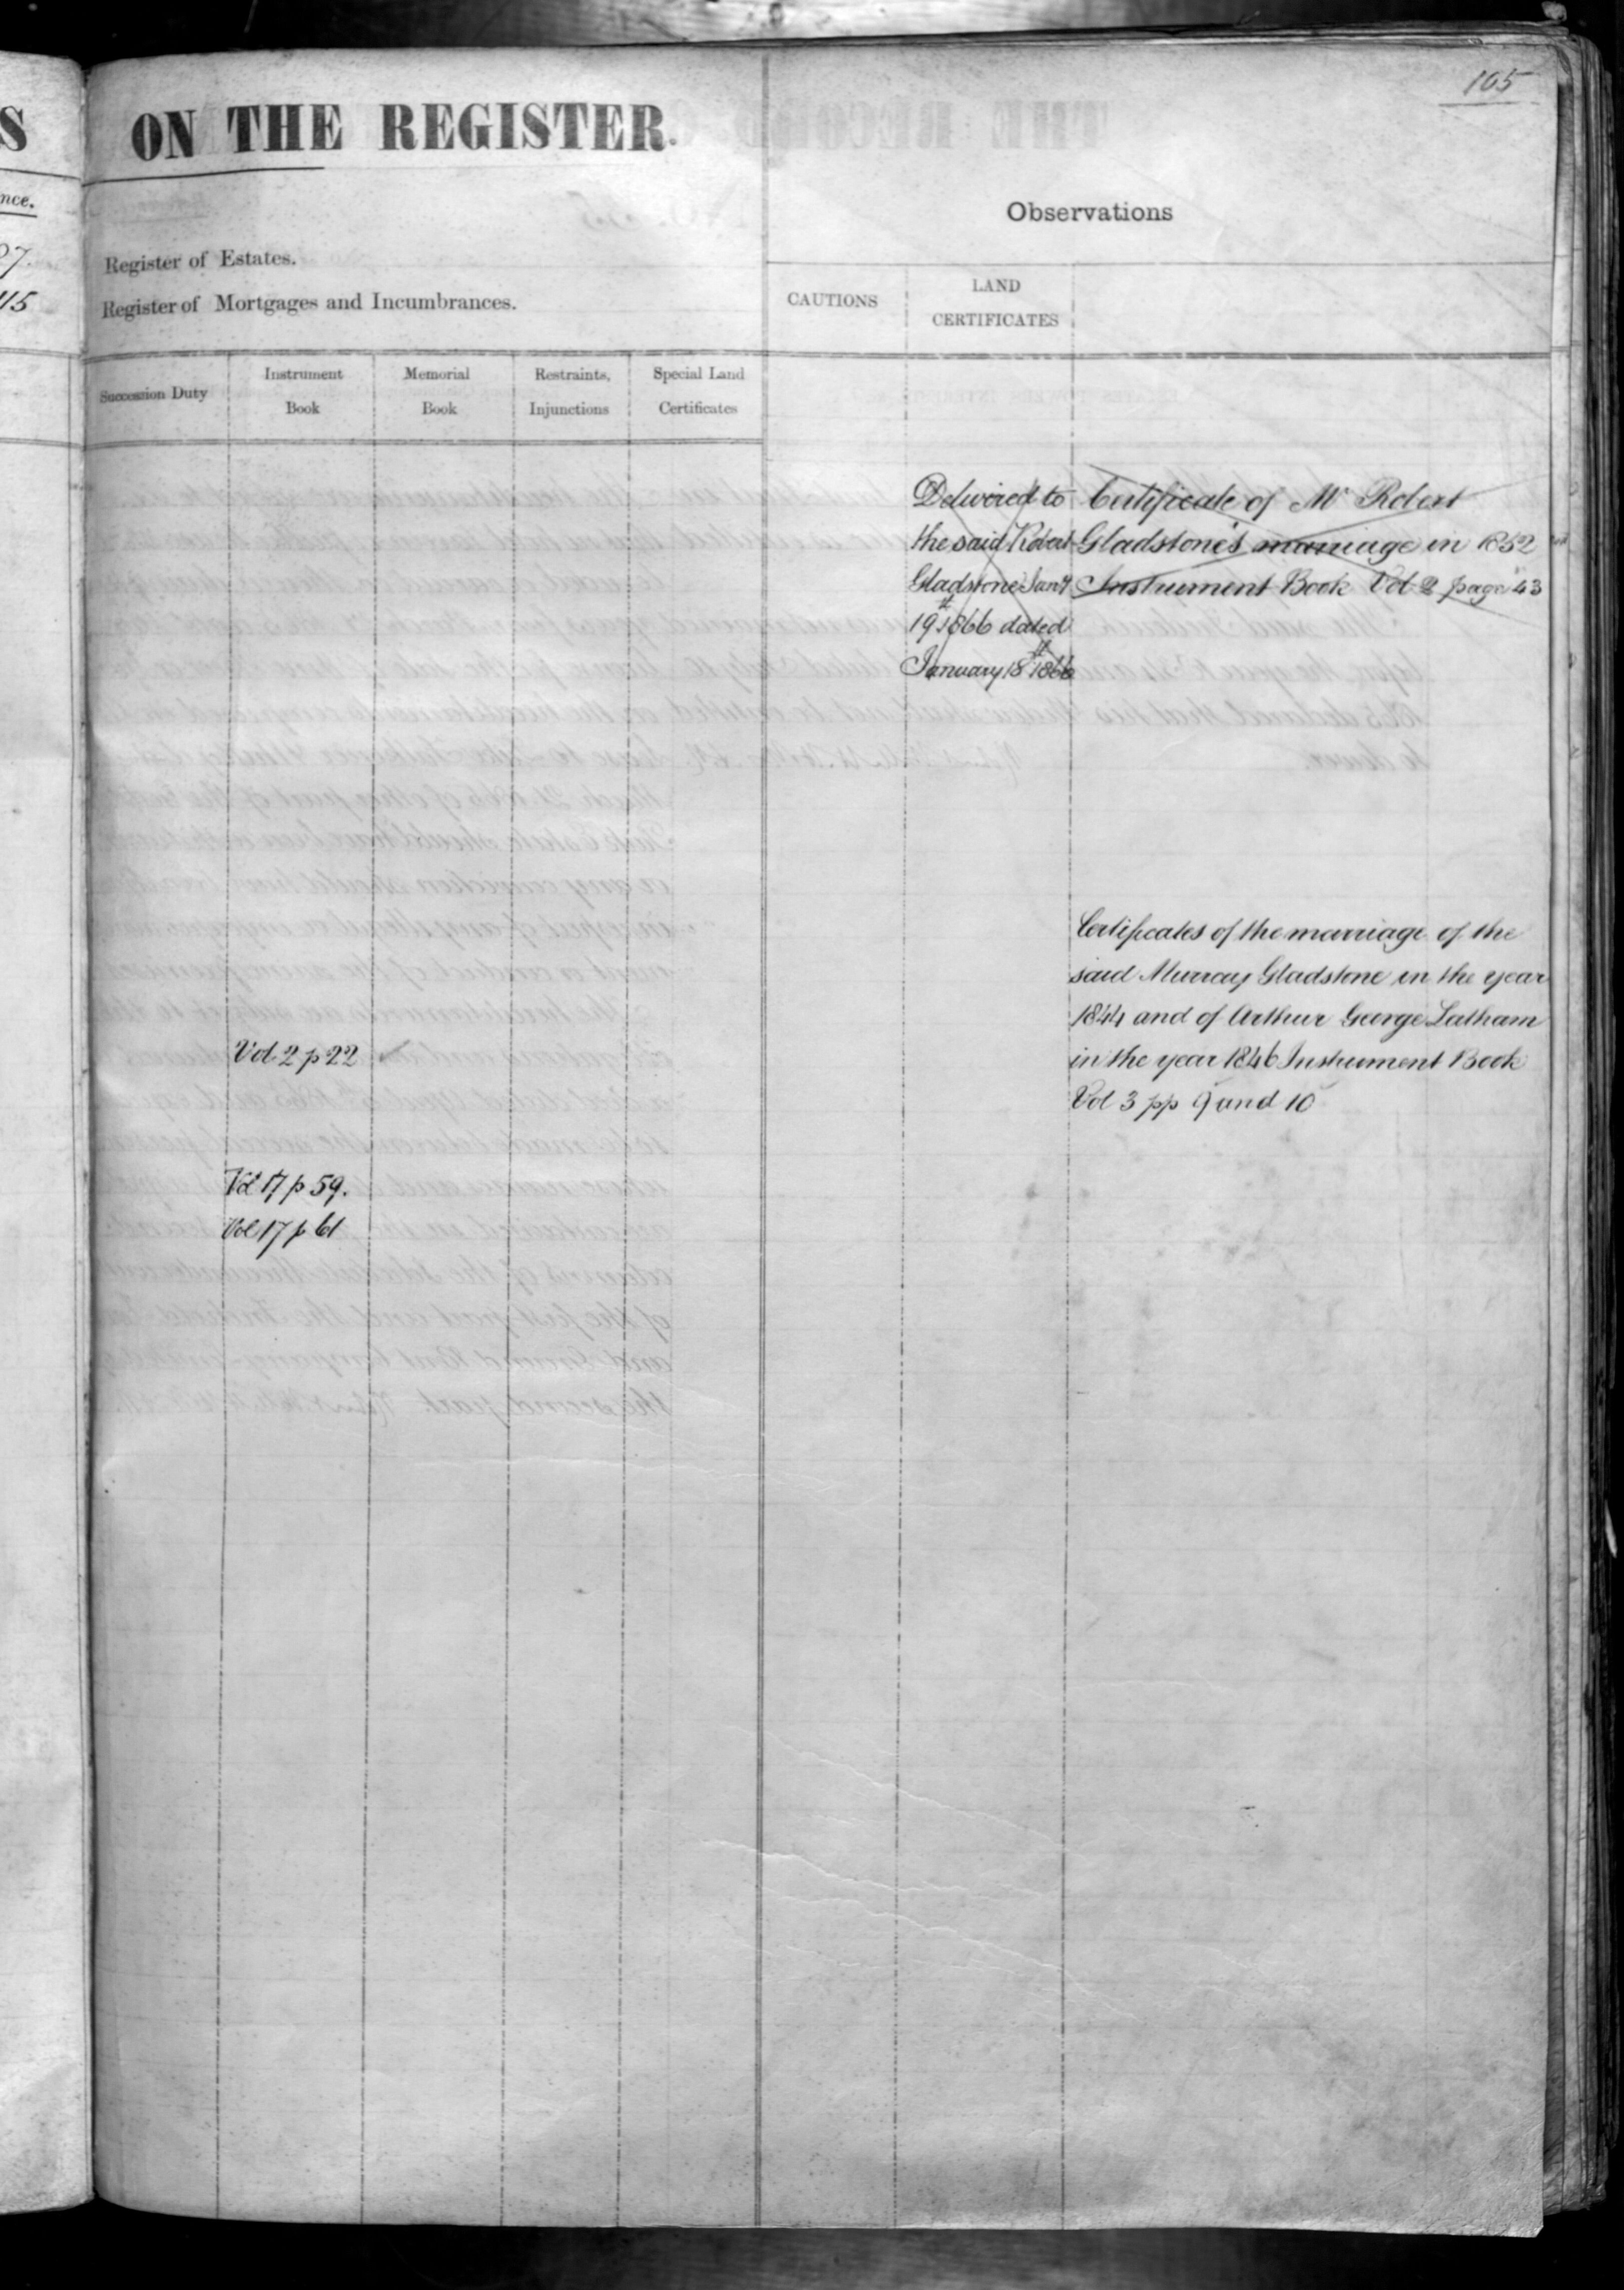 105
S
ON THE REGISTER.
nce.
Observations
Register of Estates.
Register of Mortgages and Incumbrances.
45
CAUTIONS
LAND
CERTIFICATES
Succession Duty
Instrument
Book
Memorial
Book
Restraints,
Injunctions
Special Land
Certificates
Delivered to
the said Robert
Gladstone Jany
19th 1866 dated
January 18th 1866
Certificate of Mr Robert
Gladstone's marriage in 1852
Instrument Book Vol 2 page 43
Certificates of the marriage of the
said Murray Gladstone in the year
1844 and of Arthur George Latham
in the year 1846 Instrument Book
Vol 3 pp 9 and 10
Vol 2 p 22
Vol 17 p 59.
Vol 17 p 61